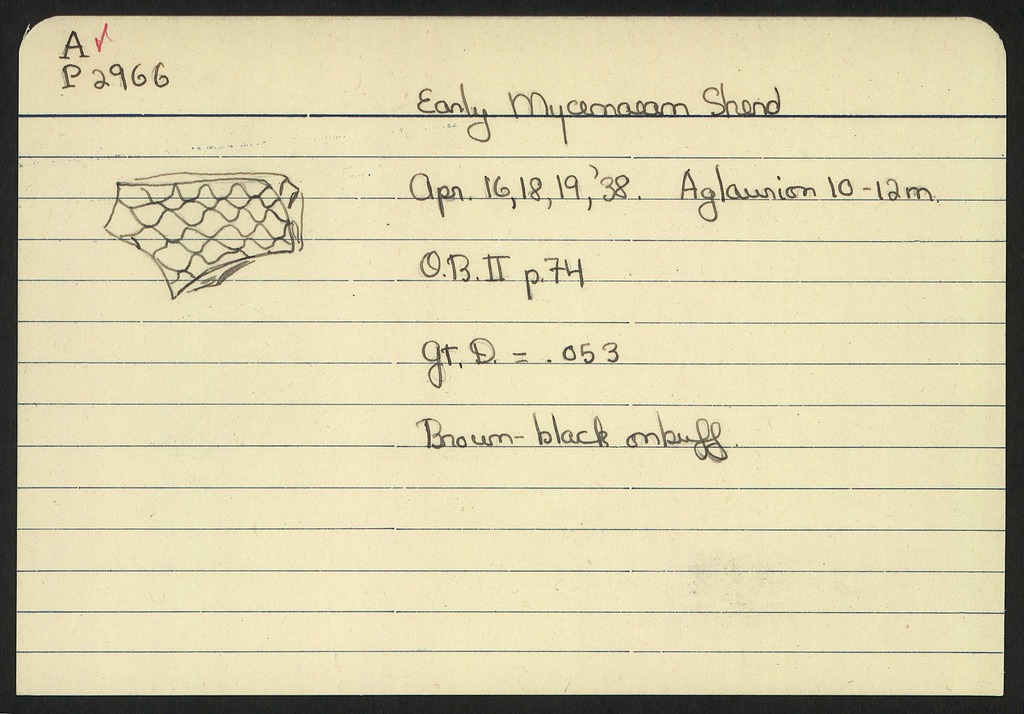 A ✓
P 2966
Early Mycenaean Sherd
Apr. 16, 18, 19, '38. Aglaurion 10-12m.
O.B. II p.74
gt. D. = .053
Brown-black on buff.